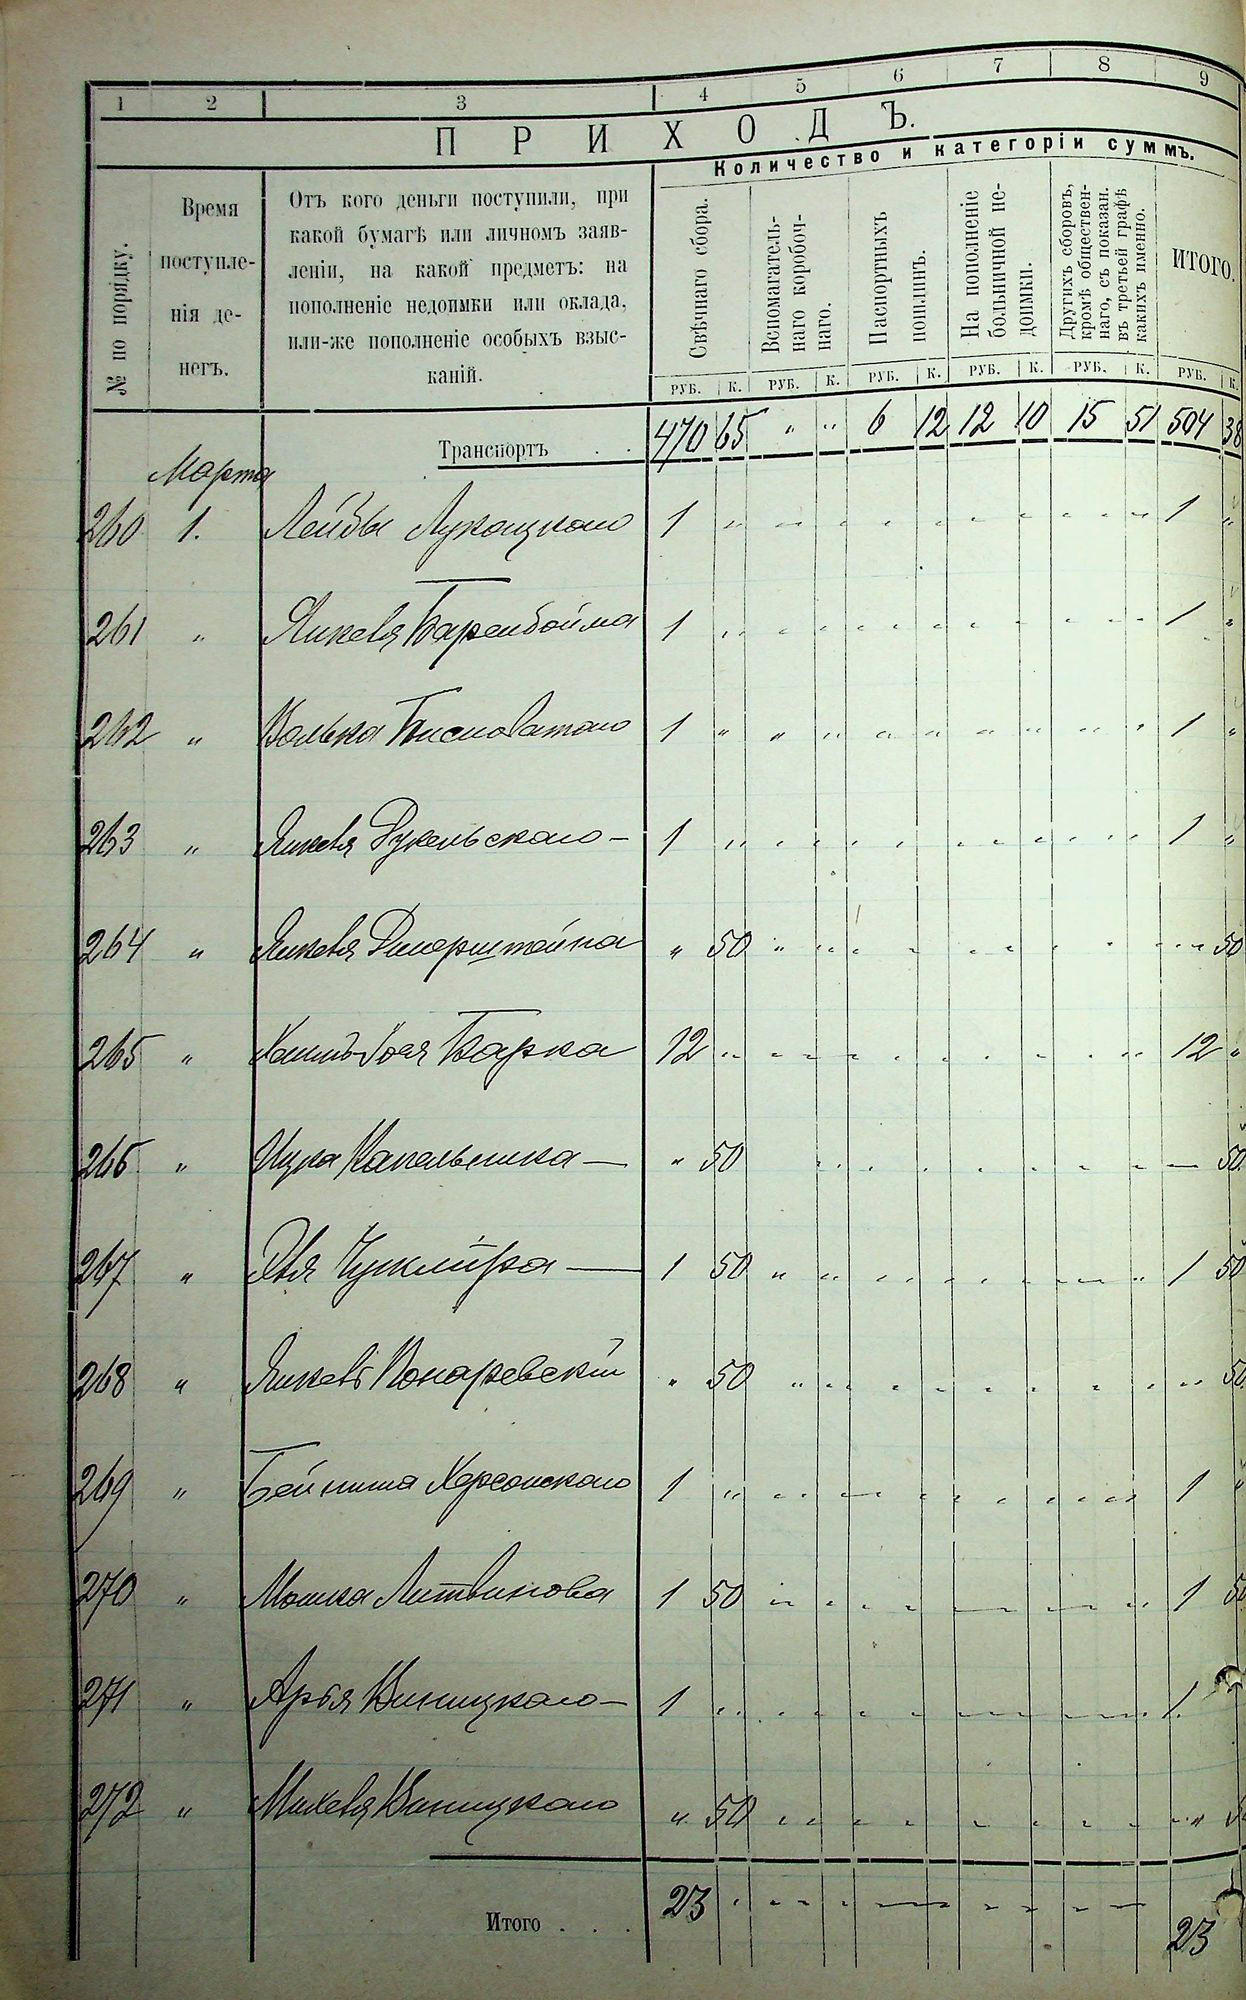 1 2 3 4 5 6 7 8 9
ПРИХОДЪ.
Количество и категоріи суммъ.
№ по порядку.
Время
поступле-
нія де-
негъ.
Отъ кого деньги поступили, при
какой бумагѣ или личномъ заяв-
леніи, на какой предметъ: на
пополненіе недоимки или оклада,
или-же пополненіе особыхъ взыс-
каній.
Свѣчнаго сбора.
Вспомагатель-
наго коробоч-
наго.
Паспортныхъ
пошлинъ.
На пополненіе
больничной не-
доимки.
Другихъ сборовъ,
кромѣ обществен-
наго, съ показан.
въ третьей графѣ
какихъ именно.
ИТОГО.
РУБ. К. РУБ. К. РУБ. К. РУБ. К. РУБ. К. РУБ. К.
Транспортъ . . 470 65 " " 6 12 12 10 15 51 504 38
Марта
260 1. Лейбы Лукацкаго 1 " 1 "
261 " Янкеля Баренбойма 1 " 1 "
262 " Волька Бисноватаго 1 " 1 "
263 " Янкеля 1 " 1 "
264 " Янкеля " 50 " 50
265 " Барка 12 " 12 "
266 " Капельника — " 50 — 50
267 " 1 50 1 50
268 " Янкель Понаревскій " 50 " 50
269 " Бейниша Херсонскаго 1 " 1 "
270 " Мошка Литвинова 1 50 1 50
271 " Арья Виницкаго — 1 " 1.
272 " Виницкаго " 50 "
Итого . . . 23 23